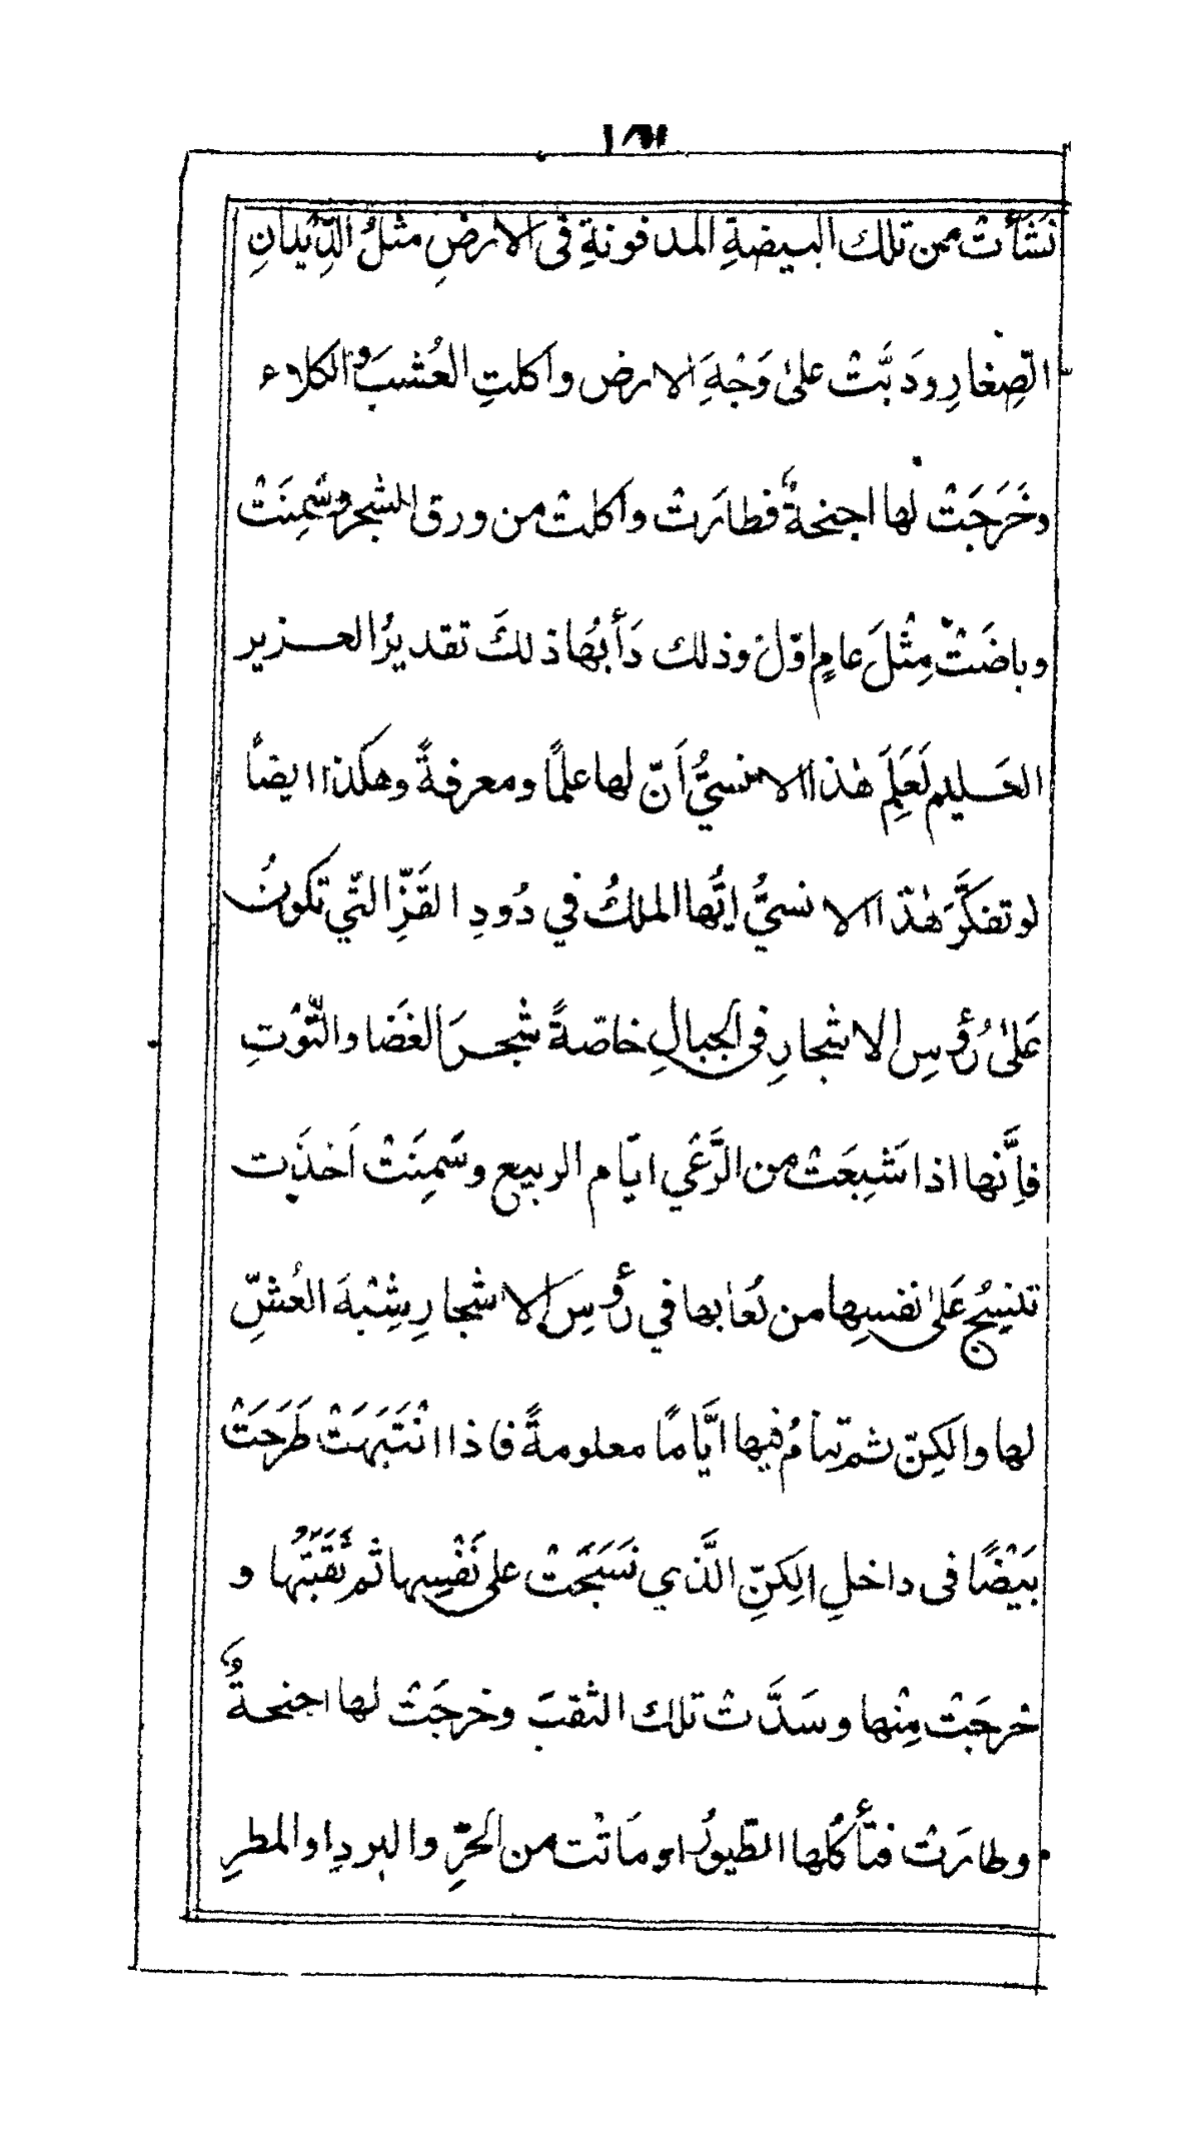 نَشَأَتْ من تلك البيضةِ المدفونةِ فى الارضِ مثلُ الدِّيْدانِ
الصِّغارِ ودَبَّتْ علىٰ وَجْهِ الارض واكلتِ العُشبَ والكلاء
وخَرَجَتْ لها اجنحةٌ فطارَتْ واكلتْ من ورق الشجر وسَمِنَتْ
وباضَتْ مِثْلَ عامٍ اوّلْ وذلك دَأبُها ذلكَ تقديرُ العــزيز
العَــليم لَعَلِمَ هٰذا الانسيُّ اَنّ لها علمًا ومعرفةً وهكذا ايضاً
لو تفكَّرَ هٰذا الانسيُّ ايّها الملكُ في دُودِ القَزِّ التّي تكونُ
عَلىٰ رُؤسِ الاشجارِ فى الجبالِ خاصّةً شجــرَ الغَضا والتُّوْتِ
فاِنَّها اذا شَبِعَتْ من الرَّعْي ايّام الربيع وسَمِنَتْ اَخذَت
تنسِجُ عَلىٰ نفسِها من لُعابها في رُؤسِ الاشجارِ شِبْهَ العُشِّ
لها والكِنّ ثم تنامُ فيها ايَّامًا معلومةً فاذا انْتَبَهَتْ طَرَحَتْ
بَيْضًا فى داخلِ الكِنّ الَّذي نَسَجَتْ على نَفْسِها ثم ثَقَبَتْها و
خرجَتْ مِنْها وسَدَّتْ تلك الثقبَ وخرجَتْ لها اجنحــةٌ
وطارَتْ فتأكُلها الطّيورُ او مَاتْت من الحَرِّ والبردِ او المطرِ